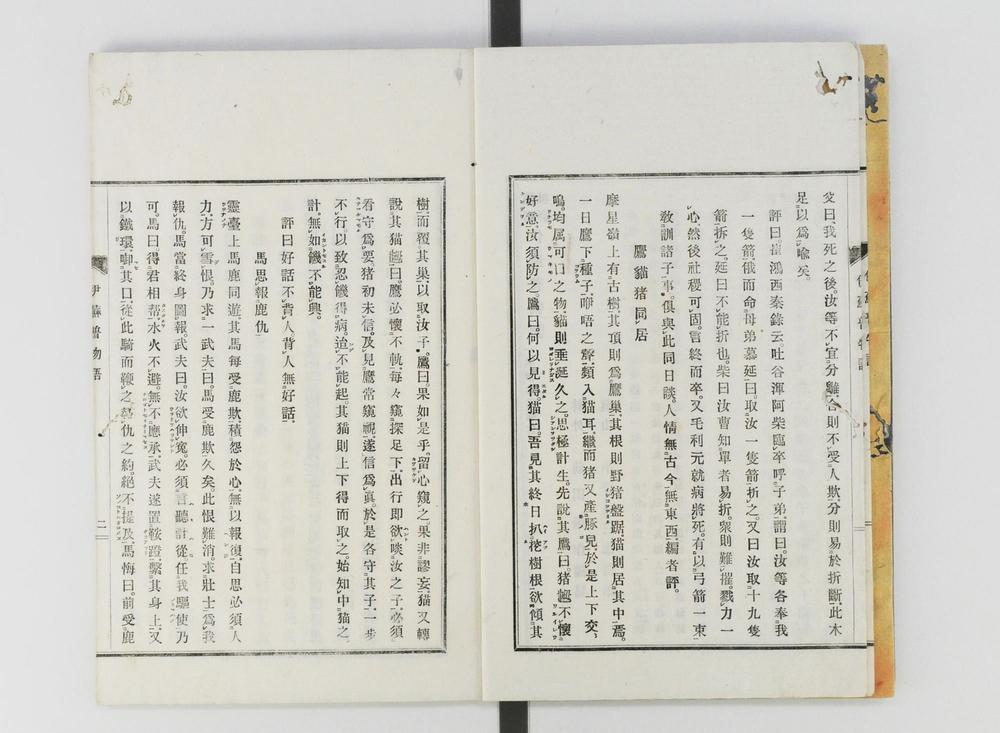 父曰、我死之後、汝等不宜分離、合則不受人欺、分則易於折斷、此木
足以爲喩矣。
評曰、崔鴻西秦錄云、吐谷渾阿柴臨卒、呼子弟謂曰、汝等各奉我
一隻箭、俄而命母弟慕延曰、取汝一隻箭折之、又曰、汝取十九隻
箭折之、延曰、不能折也、柴曰、汝曹知單者易折、衆則難摧、戮力一
心、然後社稷可固、言終而卒。又毛利元就病將死、有以弓箭一束
敎訓諸子事、俱與此同日談、人情無古今無東西、編者評。
鷹猫猪同居
摩星嶺上有古樹、其頂則爲鷹巢、其根則野猪盤踞、猫則居其中焉。
一日鷹下種子、啼唔之聲、頻入猫耳、繼而猪又產豚兒、於是上下交
鳴、均属可口之物、猫則垂涎久之、思極計生、先說其鷹曰、猪
好意、汝須防之、鷹曰。何以見得、猫曰。吾見其終日扒挖樹根、欲傾其
樹、而覆其巢、以取汝子。鷹曰、果如是乎。留心窺之、果非謬妄、猫又轉
說其猪曰、鷹必懷不軌、每々窺探足下、出行卽欲啖汝之子、必須
看守爲要、猪初未信、及見鷹常窺視、遂信爲眞、於是各守其子、一步
不行、以致忍饑得病、迨不能起、其猫則上下得而取之、始知中猫之
計、無如饑不能與。
評曰、好話不背人、背人無好話、
馬思報鹿仇
靈臺上馬鹿同遊、其馬每受鹿欺、積怨於心、無以報復、自思必須人
力、方可雪恨。乃求一武夫曰。馬受鹿欺久矣。此恨難消。求壯士爲我
報仇。馬當終身圖報。武夫曰。汝欲伸寃、必須言聽計從、任我驅使乃
可。馬曰得君相帮、水火不避。無不應承、武夫遂置鞍蹬、繫其身上、又
以鐵環啣其口、從此騎而鞭之、尋仇之約、絕不提及、馬悔曰。前受鹿
伊蘇普物語
二